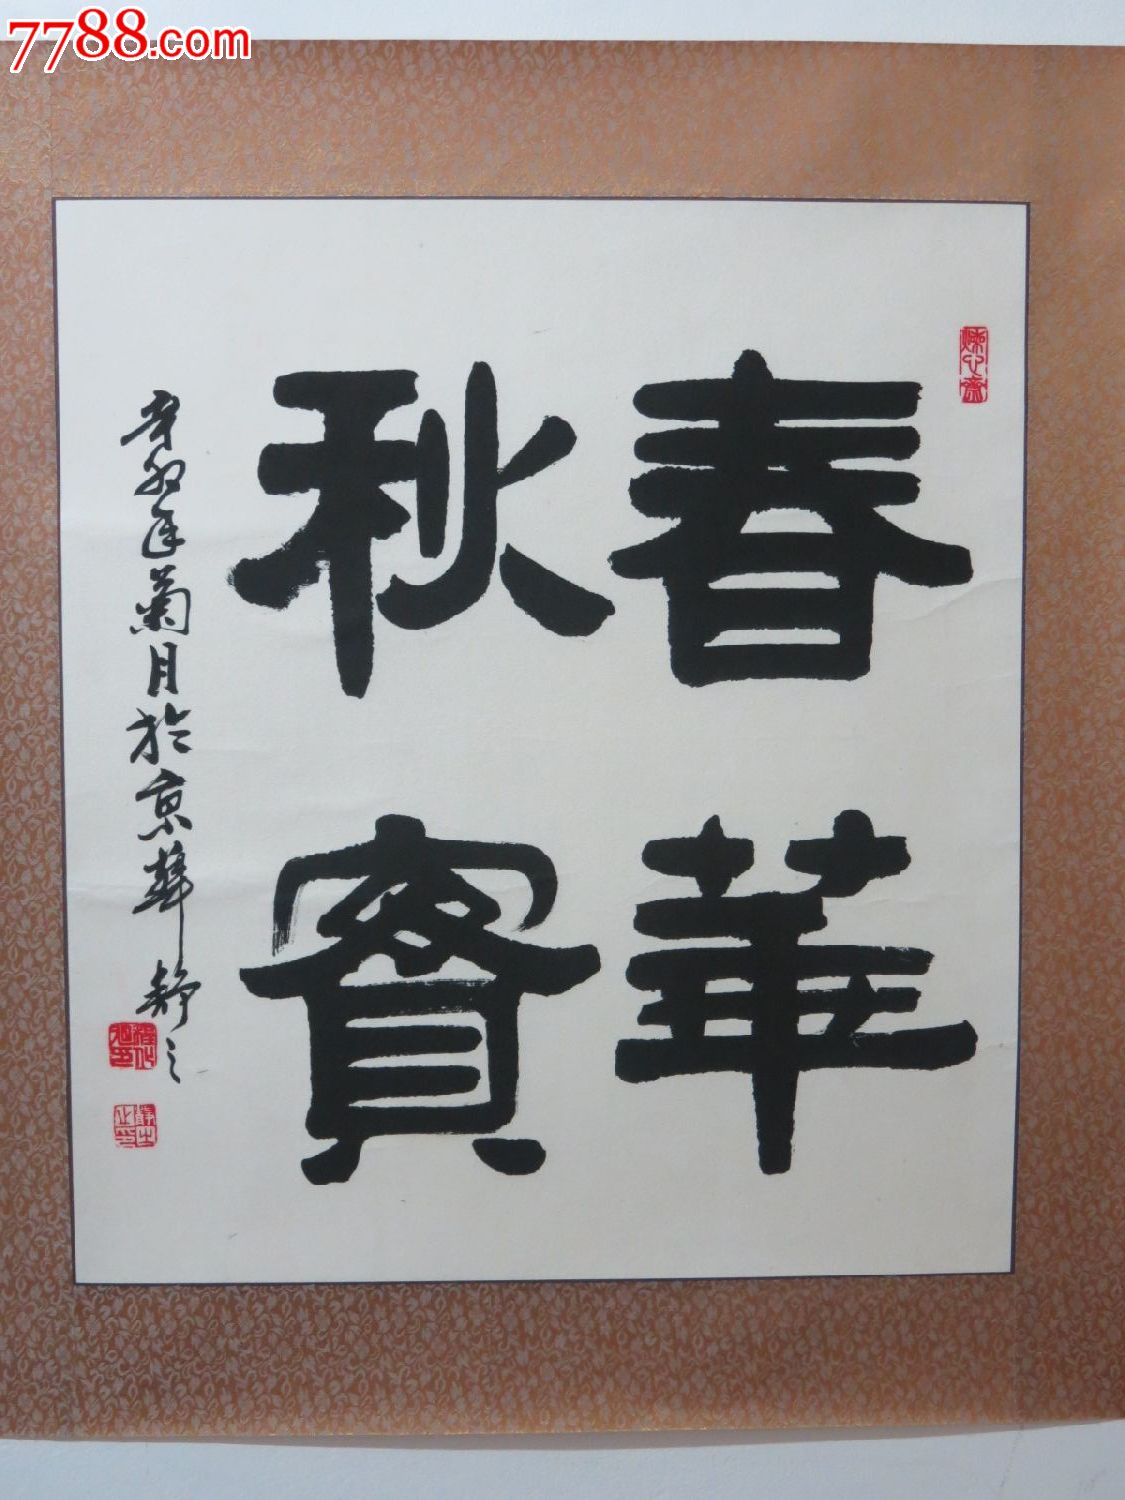 7788.com
春華
秋實
辛卯年菊月於京華靜之